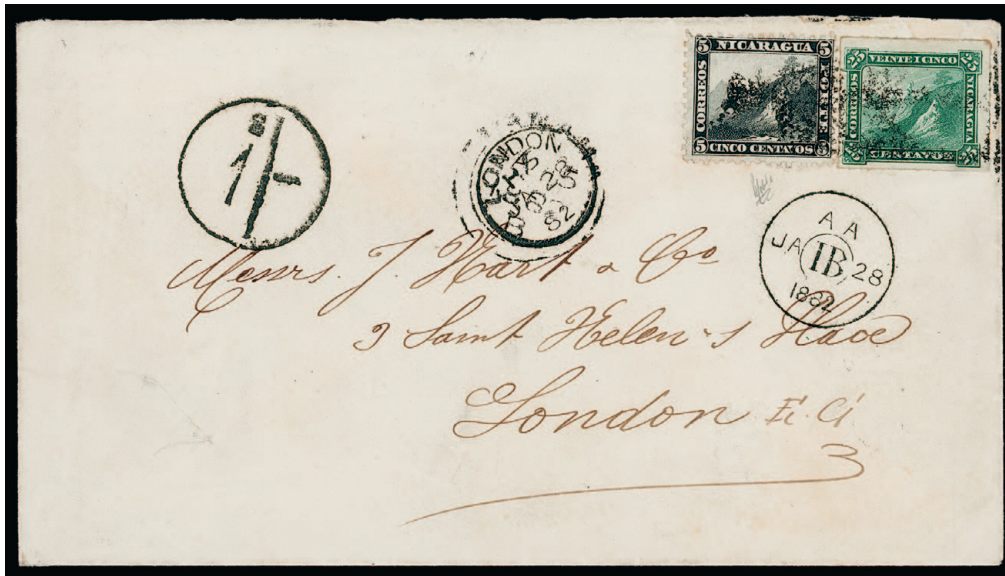 NICARAGUA
5 5
CORREOS
PORTE
CINCO CENTAVOS
5 5
VEINTE I CINCO
25 25
CORREOS
NICARAGUA
CENTAVOS
25 25
1/-
LONDON
28
82
AA
JA 1B 28
1882
Messrs. J. Hart & Co
3 Saint Helen's Place
London E.C.